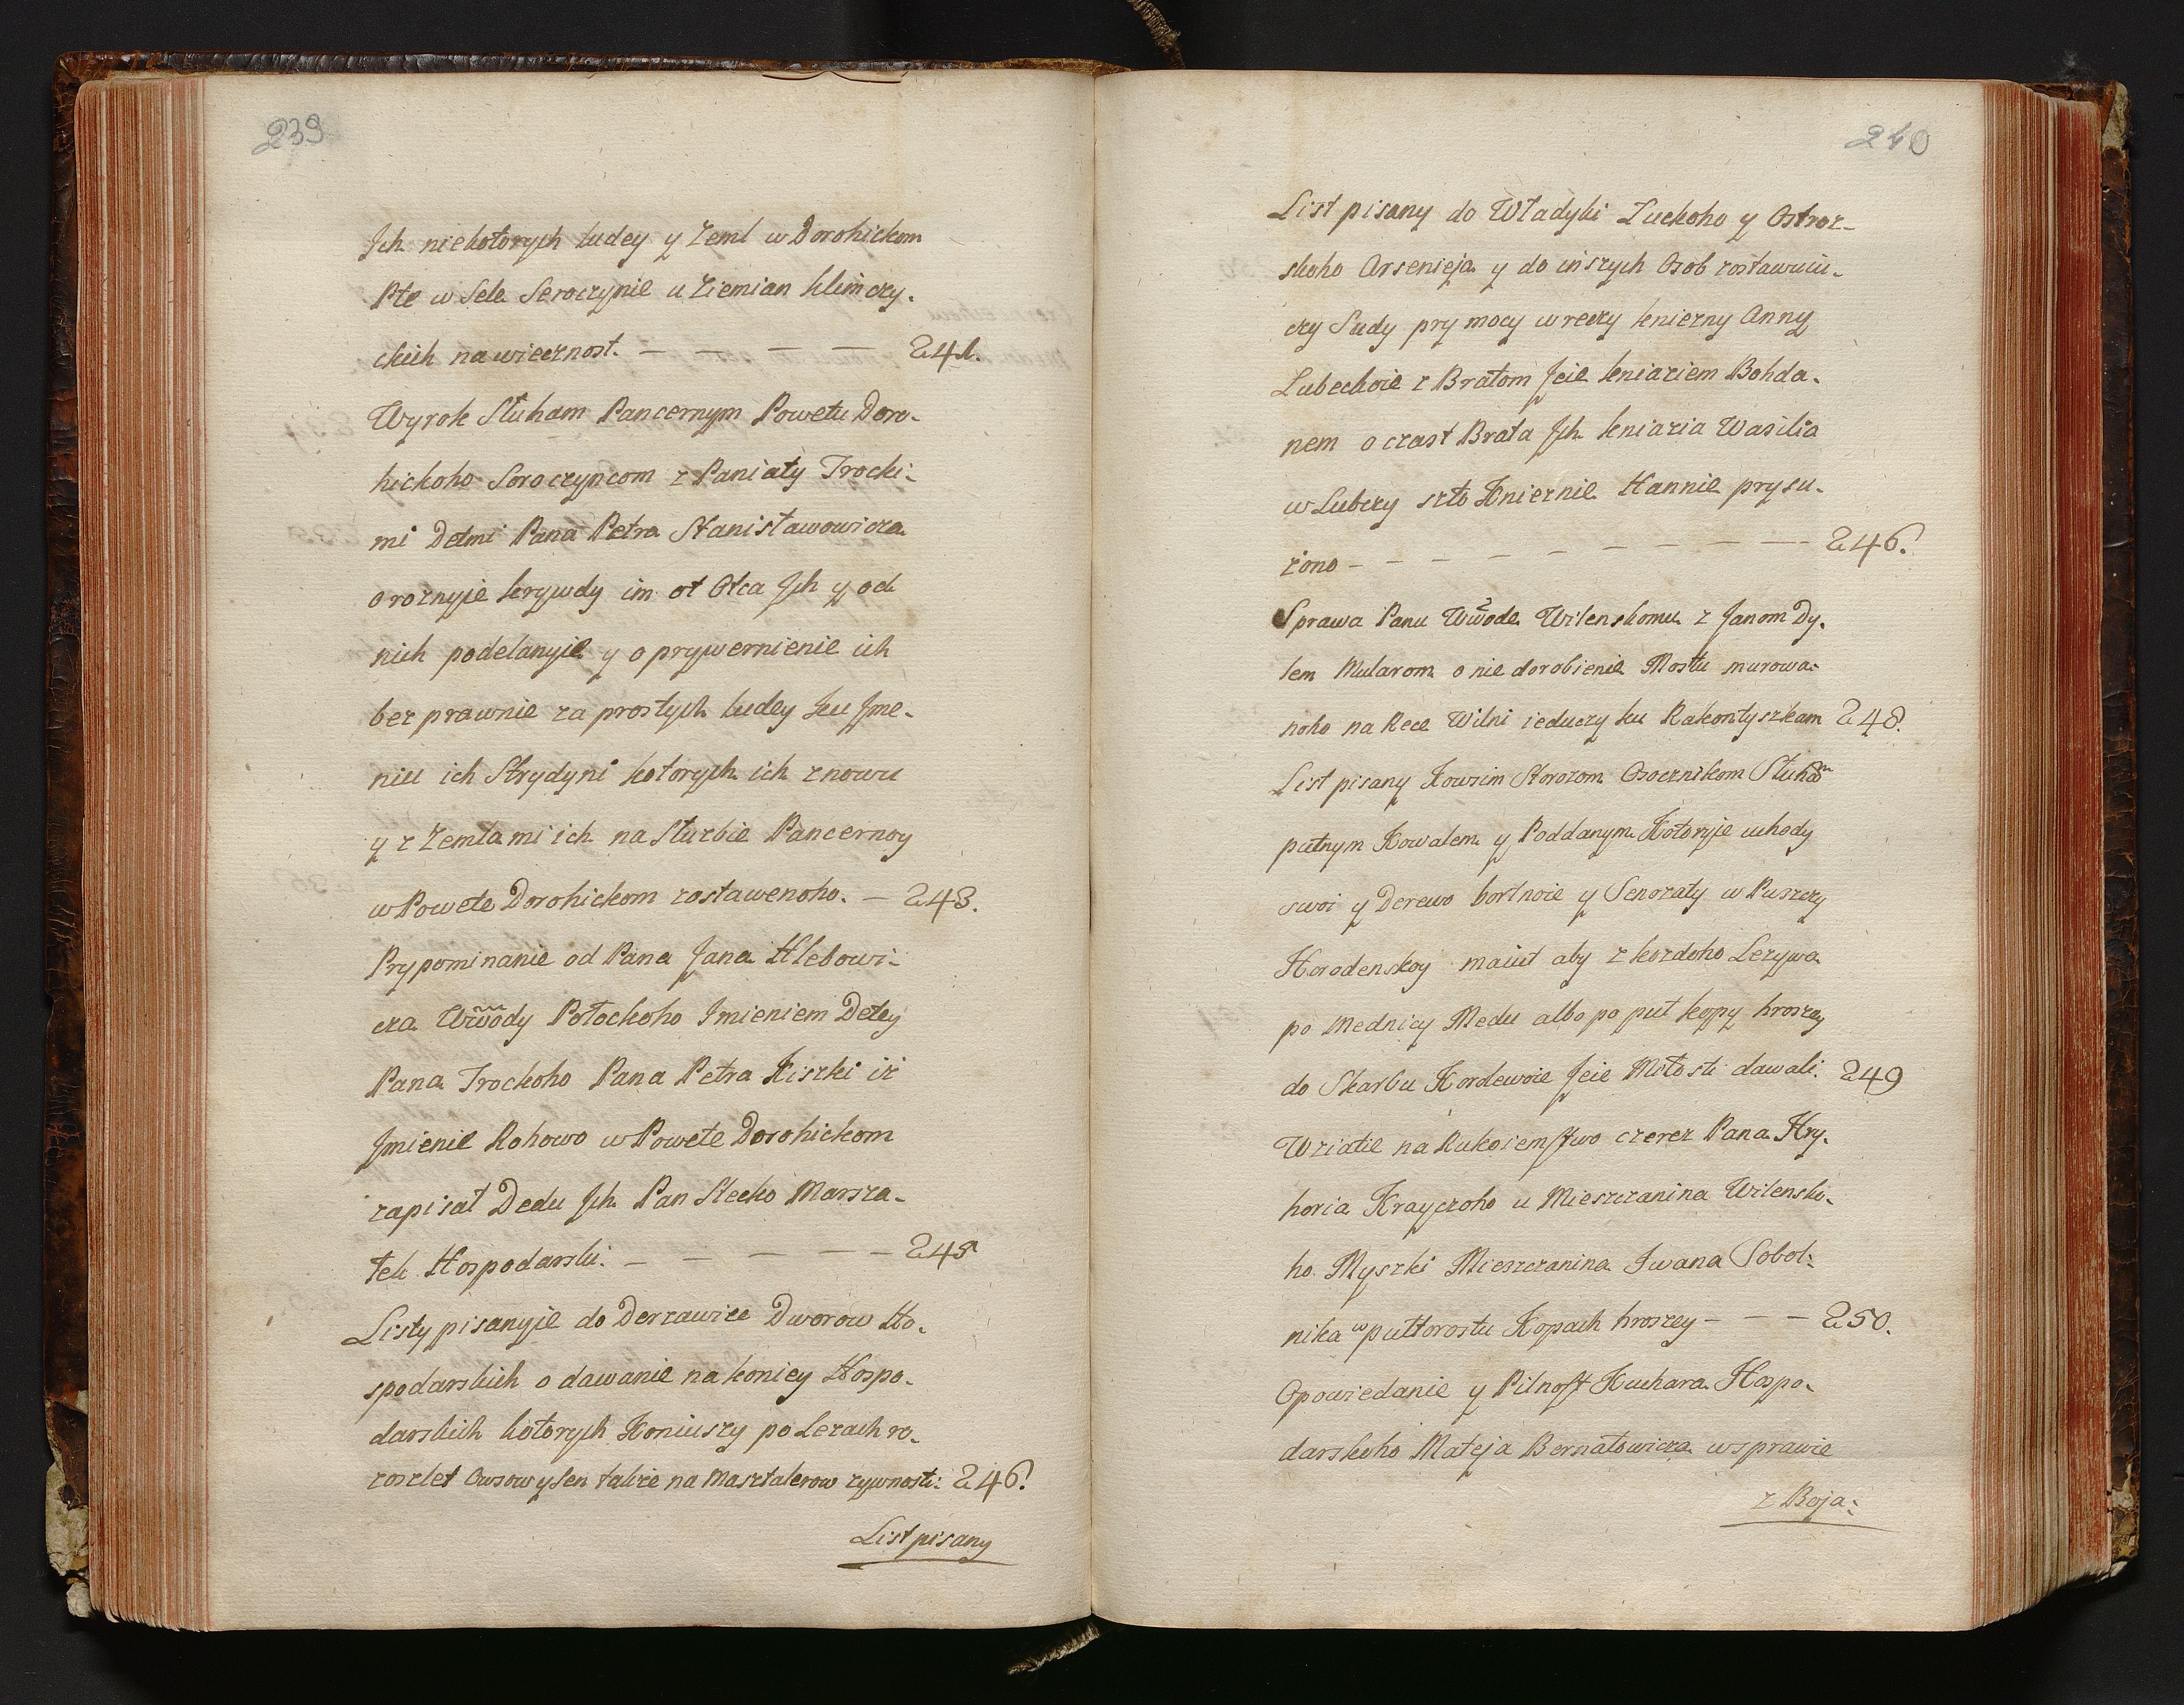 239
Jch niekotorych ludey y Zeml w Dorohickom
Pte w Sele Seroczynie u Ziemian Klimczy-
ckich na wiecznost. — — — — 241.
Wyrok Słuham Pancernym Powetu Doro-
hickoho Soroczyncom z Paniaty Trocki-
mi Detmi Pana Petra Stanisławowicza
o roznyie krywdy im ot Otca Jch y od
nich podełanyie y o prywernienie ich
bez prawnie za prostych ludey ku Jme-
niu ich Strydyni kotorych ich znowu
y z Zemlami ich na Służbie Pancernoy
w Powete Dorohickom zostawenoho. — 243.
Prypominanie od Pana Jana Hlebowi-
cza Wwody Połockoho Imieniem Detey
Pana Trockoho Pana Petra Kiszki iż
Jmienie Rohowo w Powete Dorohickom
zapisał Dedu Jch Pan Stecko Marsza-
łek Hospodarski. — — — — — 245
Listy pisanyie do Derzawice Dworow Ho-
spodarskich o dawanie na koniey Hospo-
darskich kotorych Koniuszy po Lezach ro-
zoszlet Owsow y Sen takze na Masztalerow zywnosti. 246.
List pisany
240
List pisany do Władyki Łuckoho y Ostroz-
skoho Arsenieja y do inszych Osob zostawuiu-
czy Sudy pry mocy w reczy kniezny Anny
Lubeckoie z Bratom Jeie kniaziem Bohda-
nem o czast Brata Jch kniazia Wasilia
w Lubczy szto Knieznie Hannie prysu-
żono — — — — — — — — 246.
Sprawa Panu Wwode Wilenskomu z Janom Dy-
lem Mularom o nie dorobienie Mostu murowa-
noho na Rece Wilni ieduczy ku Rakontyszkam 248.
List pisany Kowsim Storozom Osocznikom Słuham
putnym Kowalem y Poddanym Kotoryie uchody
swoi y Derewo bortnoie y Senozaty w Puszczy
Horodenskoy maiut aby z kozdoho Lezywa
po Mednicy Medu albo po put kopy hroszey
do Skarbu Korolewoie Jeie Miłosti dawali. 249
Wziatie na Rukoiemstwo czerez Pana Hry-
horia Krayczoho u Mieszczanina Wilensko-
ho Myszki Mieszczanina Iwana Sobol-
nika w pułtorostu Kopach hroszey — — — 250.
Opowiedanie y Pilnost Kuchara Hospo-
darskoho Mateja Bernatowicza w sprawie
z Boja-